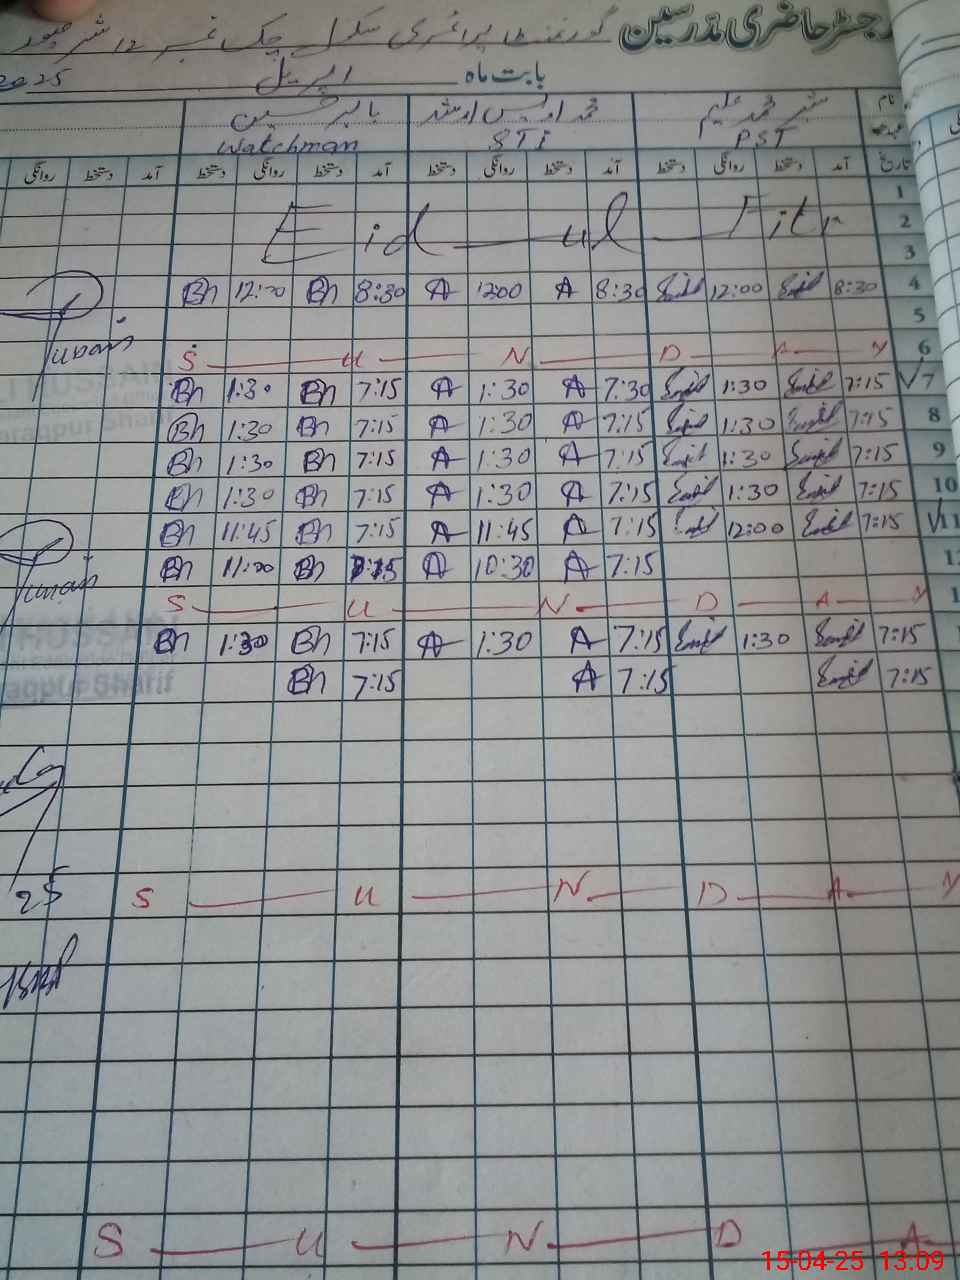 رجسٹر حاضری مدرسین گورنمنٹ پرائمری سکول چک نمبر 12 شرقپور
بابت ماہ اپریل 2025
نام محمد اویس ارشد بابر حسین
عہدہ PST STI Watchman
تاریخ آمد دستخط روانگی دستخط آمد دستخط روانگی دستخط آمد دستخط روانگی دستخط آمد دستخط روانگی
1
2
Eid ul Fitr
3
Bh 12:00 Bh 8:30 A 1200 A 8:30 12:00 8:30 4
5
S U N D A Y 6
Bh 1:30 Bh 7:15 A 1:30 A 7:30 1:30 7:15 7
Bh 1:30 Bh 7:15 A 1:30 A 7:15 1:30 7:15 8
Bh 1:30 Bh 7:15 A 1:30 A 7:15 1:30 7:15 9
Bh 1:30 Bh 7:15 A 1:30 A 7:15 1:30 7:15 10
Bh 11:45 Bh 7:15 A 11:45 A 7:15 12:00 7:15 11
Bh 11:00 Bh 7:15 A 10:30 A 7:15
S U N D A Y
Bh 1:30 Bh 7:15 A 1:30 A 7:15 1:30 7:15
Bh 7:15 A 7:15 7:15
25 S U N D A Y
S U N D A
HUSSAIN
raqpur Sharif
raqpur Sharif
15-04-25 13:09